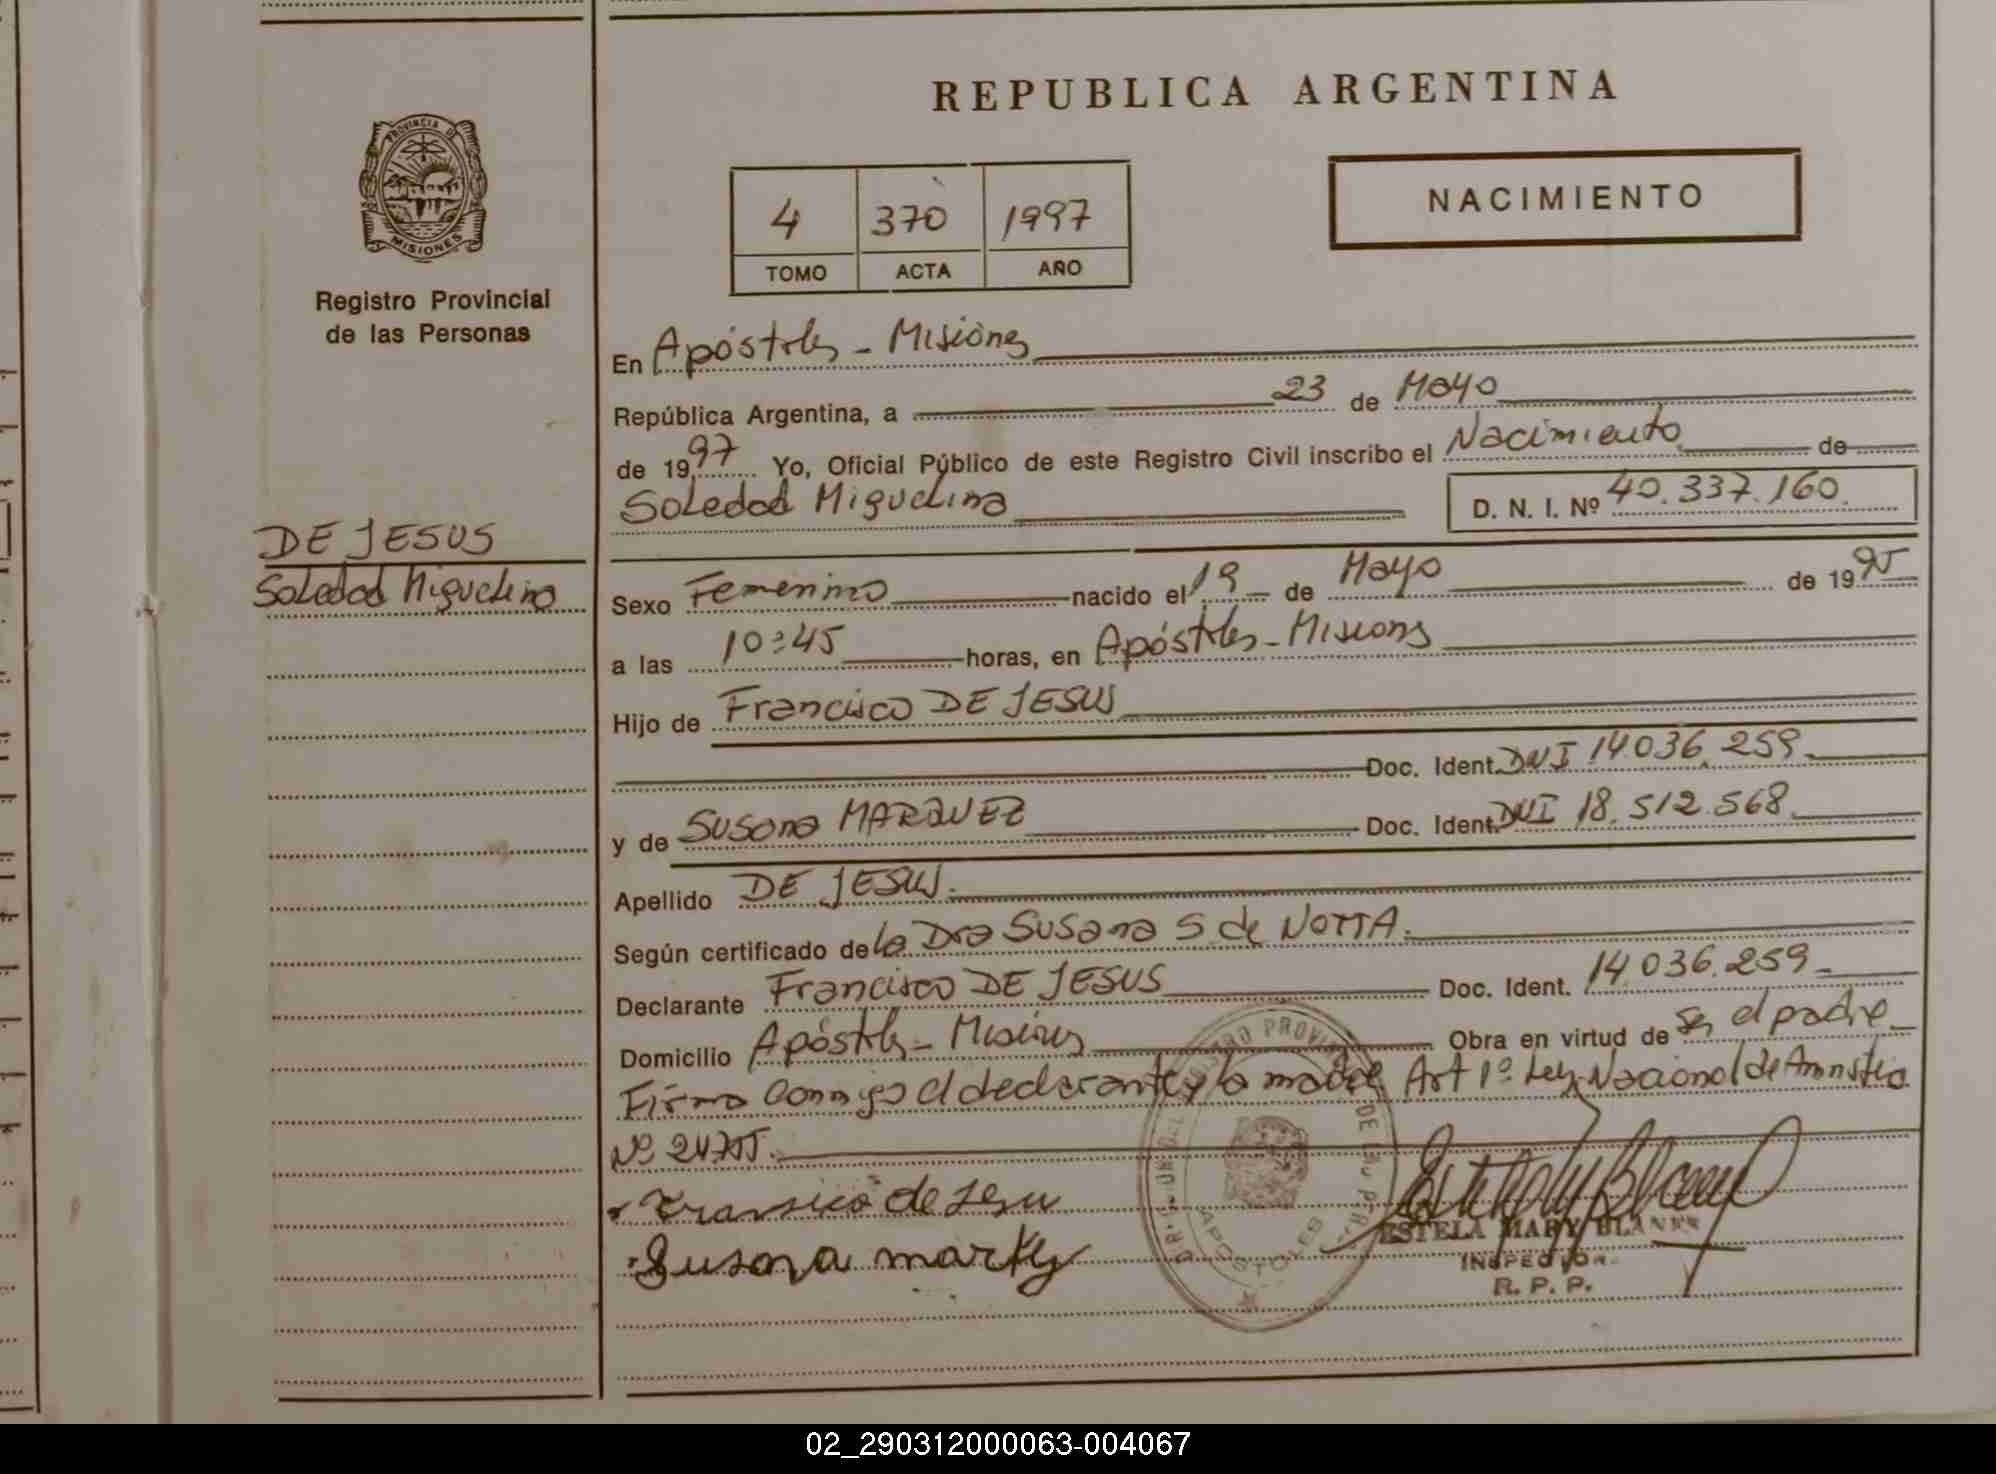 REPUBLICA ARGENTINA
PROVINCIA DE
MISIONES
Registro Provincial
de las Personas
DE JESUS
Soledad Miguelina
4 370 1997
TOMO ACTA AÑO
NACIMIENTO
En Apóstoles - Misiones
República Argentina, a 23 de Mayo
de 1997 Yo, Oficial Público de este Registro Civil inscribo el Nacimiento de
Soledad Miguelina D. N. I. Nº 40.337.160
Sexo Femenino nacido el 19 de Mayo de 1995
a las 10:45 horas, en Apóstoles - Misiones
Hijo de Francisco DE JESUS
Doc. Ident. DNI 14.036.259
y de Susana MARQUEZ Doc. Ident. DNI 18.512.568
Apellido DE JESUS.
Según certificado de la Dra Susana S. de NOTTA.
Declarante Francisco DE JESUS Doc. Ident. 14.036.259
Domicilio Apóstoles - Misiones Obra en virtud de ser el padre
Firma conmigo el declarante y la madre. Art 1º Ley Nacional de Amnistia
Nº 24755.
Fransisco de Jesu
Susana markes
APOSTOLES
ESTELA MARY BLANES
INSPECTOR
R. P. P.
02_290312000063-004067